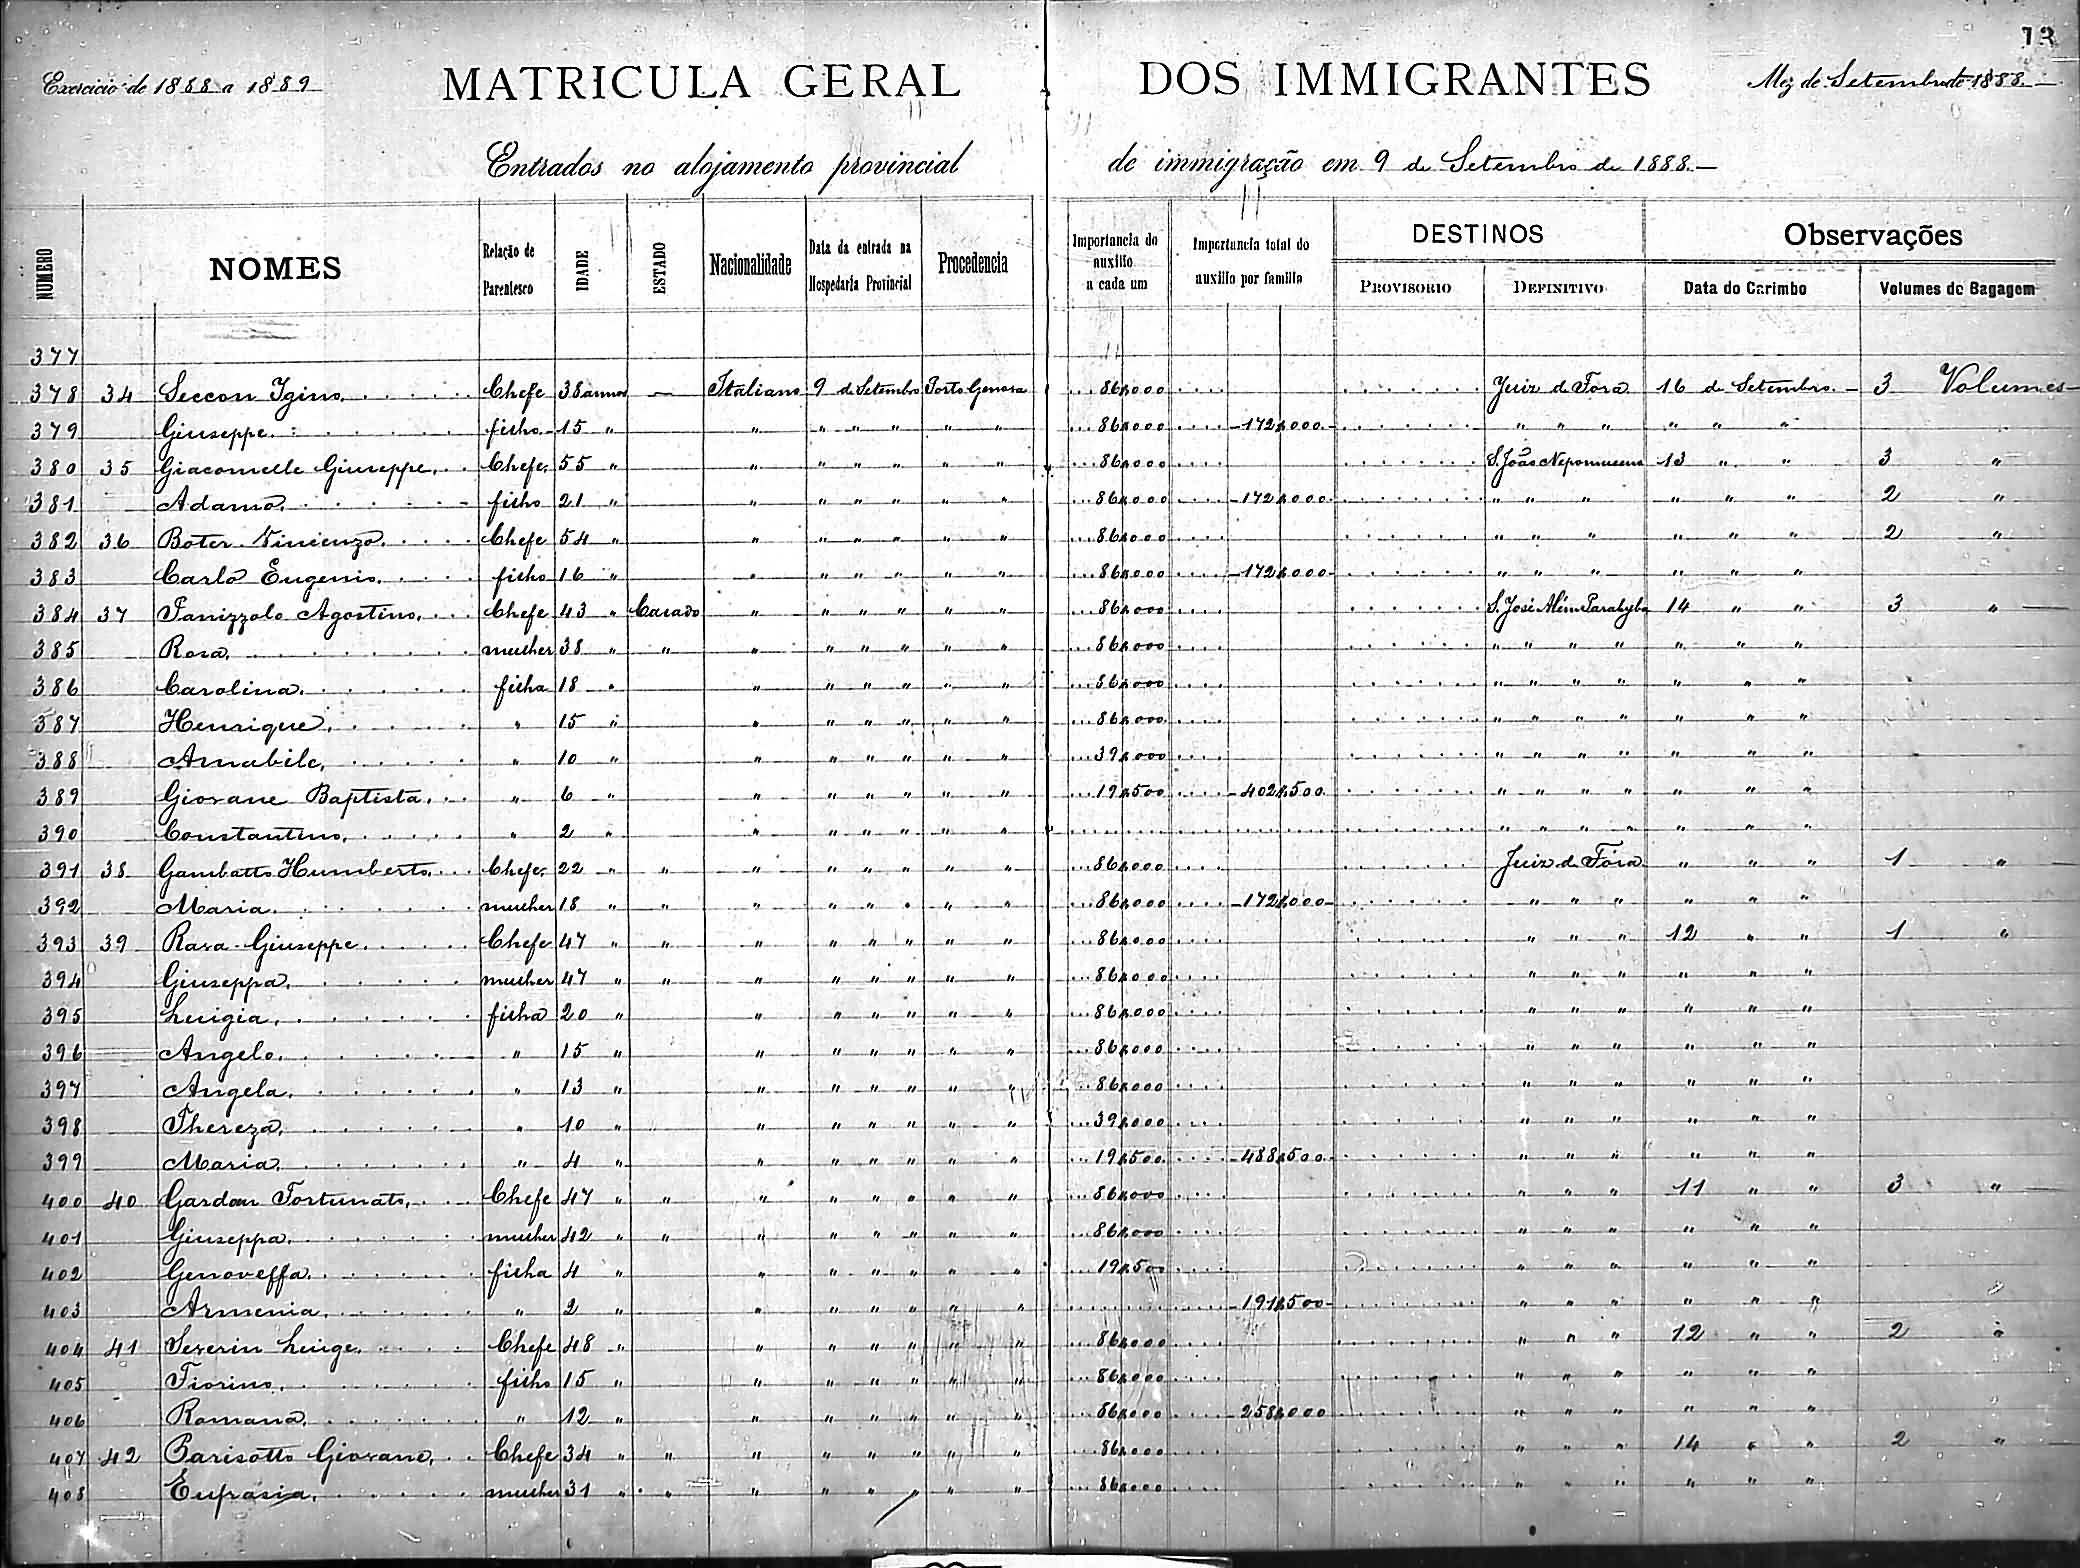 13
Exercicio de 1888 a 1889 MATRICULA GERAL DOS IMMIGRANTES Mez de Setembro de 1888.—
Entrados no alojamento provincial de immigração em 9 de Setembro de 1888.—
NUMERO NOMES Relação de Parentesco IDADE ESTADO Nacionalidade Data da entrada na Hospedaria Provincial Procedencia Importancia do auxilio a cada um Importancia total do auxilio por familia DESTINOS PROVISORIO DEFINITIVO Observações Data do Carimbo Volumes de Bagagem
377
378 34 Seccon Igino. Chefe 38 annos — Italiano 9 de Setembro Porto Genova 86$000 Juiz de Fora 16 de Setembro. — 3 Volumes —
379 Giuseppe. filho 15 " " " " " " " 86$000 172$000 " " " " " "
380 35 Giacomelle Giuseppe. Chefe 55 " " " " " " " 86$000 S. João Nepomuceno 13 " " 3 "
381 Adamo. filho 21 " " " " " " " 86$000 172$000 " " " " " " 2 "
382 36 Boter Vincenzo. Chefe 54 " " " " " " " 86$000 " " " " " " 2 "
383 Carlo Eugenio. filho 16 " " " " " " " 86$000 172$000 " " " " " "
384 37 Fanizzolo Agostino. Chefe 43 " Casado " " " " " " 86$000 S. José Além Parahyba 14 " " 3 " —
385 Rosa. mulher 38 " " " " " " " " 86$000 " " " " " " "
386 Carolina. filha 18 " " " " " " " 86$000 " " " " " " "
387 Henrique. " 15 " " " " " " " 86$000 " " " " " " "
388 Amabile. " 10 " " " " " " " 39$000 " " " " " " "
389 Giovane Baptista. " 6 " " " " " " " 19$500 402$500 " " " " " " "
390 Constantino. " 2 " " " " " " " " " " " " " "
391 38 Gambatto Humberto. Chefe 22 " " " " " " " " 86$000 Juiz de Fóra " " " 1 "
392 Maria. mulher 18 " " " " " " " " 86$000 172$000 " " " " " "
393 39 Rava Giuseppe. Chefe 47 " " " " " " " " 86$000 " " " 12 " " 1 "
394 Giuseppa. mulher 47 " " " " " " " " 86$000 " " " " " "
395 Luigia. filha 20 " " " " " " " 86$000 " " " " " "
396 Angelo. " 15 " " " " " " " 86$000 " " " " " "
397 Angela. " 13 " " " " " " " 86$000 " " " " " "
398 Thereza. " 10 " " " " " " " 39$000 " " " " " "
399 Maria. " 4 " " " " " " " 19$500 488$500 " " " " " "
400 40 Gardan Fortunato. Chefe 47 " " " " " " " " 86$000 " " " 11 " " 3 "
401 Giuseppa. mulher 42 " " " " " " " " 86$000 " " " " " "
402 Genoveffa. filha 4 " " " " " " " 19$500 " " " " " "
403 Armenia. " 2 " " " " " " " 191$500 " " " " " "
404 41 Severin Luige. Chefe 48 " " " " " " " 86$000 " " " 12 " " 2 "
405 Fiorino. filho 15 " " " " " " " 86$000 " " " " " "
406 Romana. " 12 " " " " " " " 86$000 258$000 " " " " " "
407 42 Barisotto Giovane. Chefe 34 " " " " " " " " 86$000 " " " 14 " " 2 "
408 Eufrasia. mulher 31 " " " " " " " " 86$000 " " " " " "